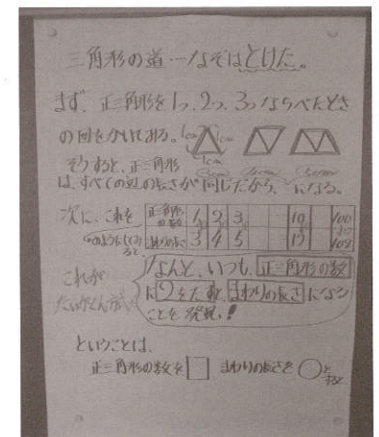 三角形の道…なぞはとけた。
まず、正三角形を1つ、2つ、3つならべたとき
の図をかいてみる。
1cm 1cm
1cm
そうすると、正三角形
は、すべての辺の長さが同じだから、になる。
次に、これを
正三角形の数 1 2 3 10 100
まわりの長さ 3 4 5 12 102
これが
なんと、いつも、正三角形の数
に2をたすと、まわりの長さになる
ことを発見!
ということは、
正三角形の数を□ まわりの長さを○と
すると